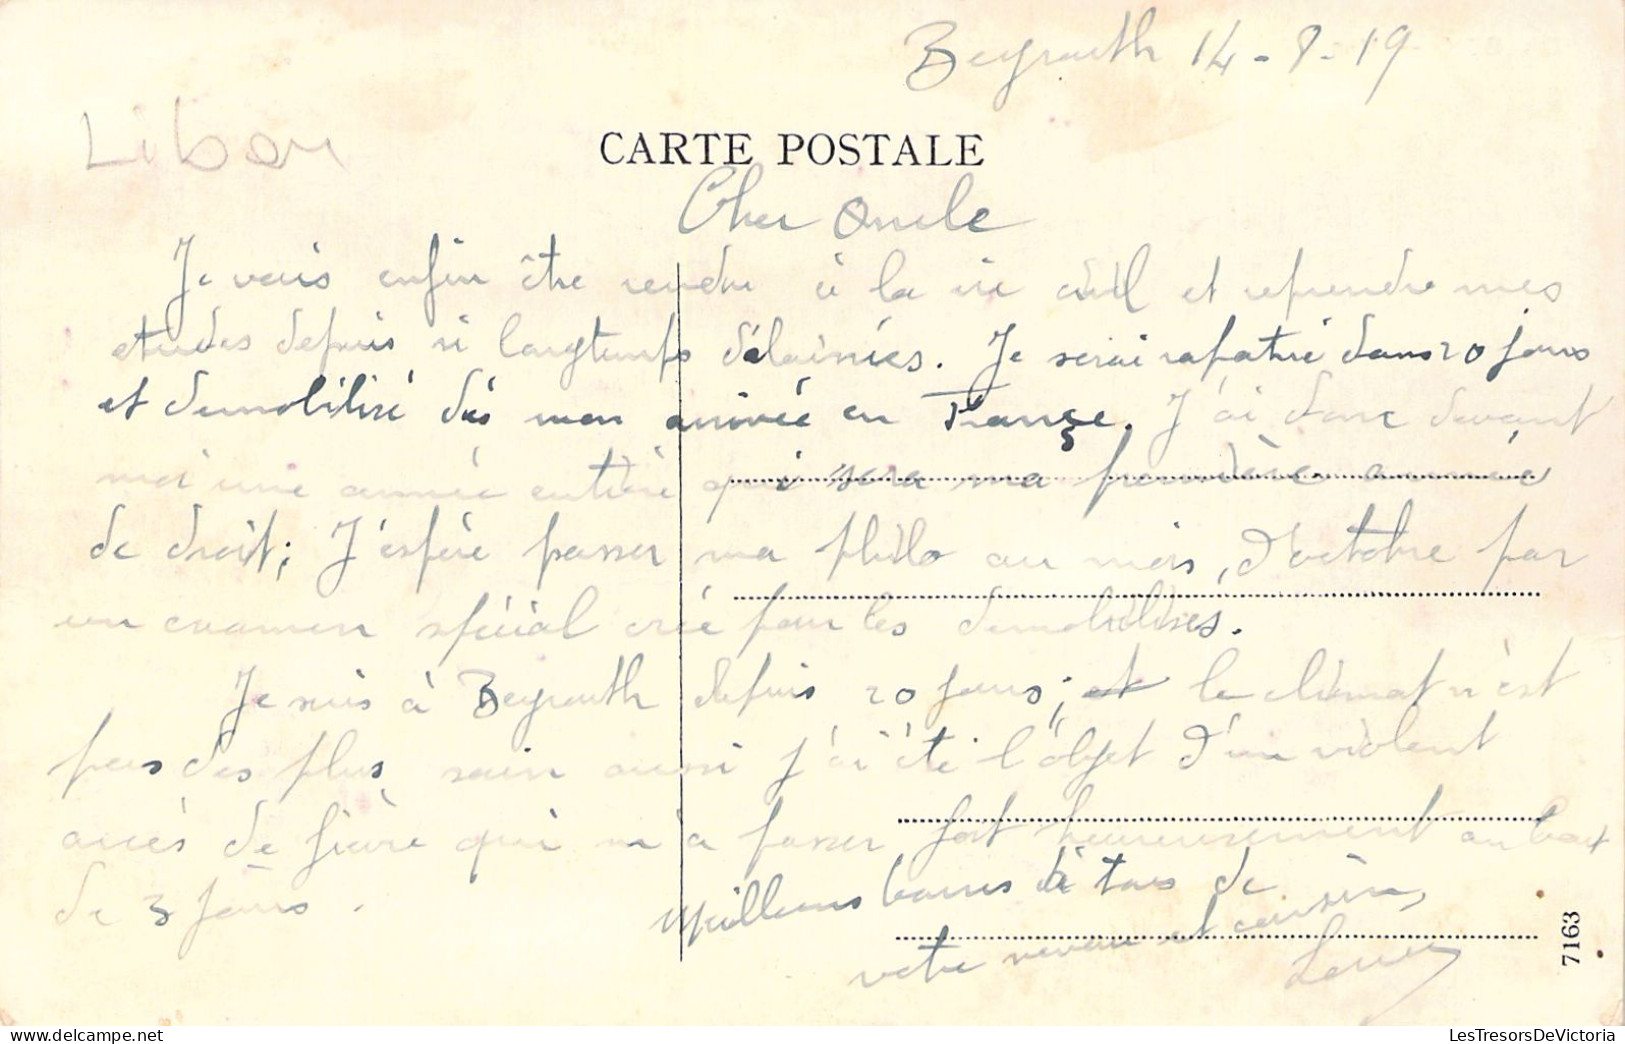 Beyrouth 14-8-19
Liban
CARTE POSTALE
Cher Oncle
Je vais enfin être rendu à la vie civil et reprendre mes
etudes depuis si longtemps délaissées. Je serai rapatrié dans 20 jours
et demobilisé dès mon arrivée en France. J'ai donc devant
moi une année entière qui sera ma première année
de droit; J'espère passer ma philo au mois, d'octobre par
un examen spécial créé pour les demobilisés.
Je suis à Beyrouth depuis 20 jours; et le climat n'est
pas des plus sain aussi j'ai été l'objet d'un violent
accès de fièvre qui m'a passer fort heureusement au bout
de 3 jours.
Meilleurs baisers à tous de
votre neveu et cousin,
7163
LesTresorsDeVictoria